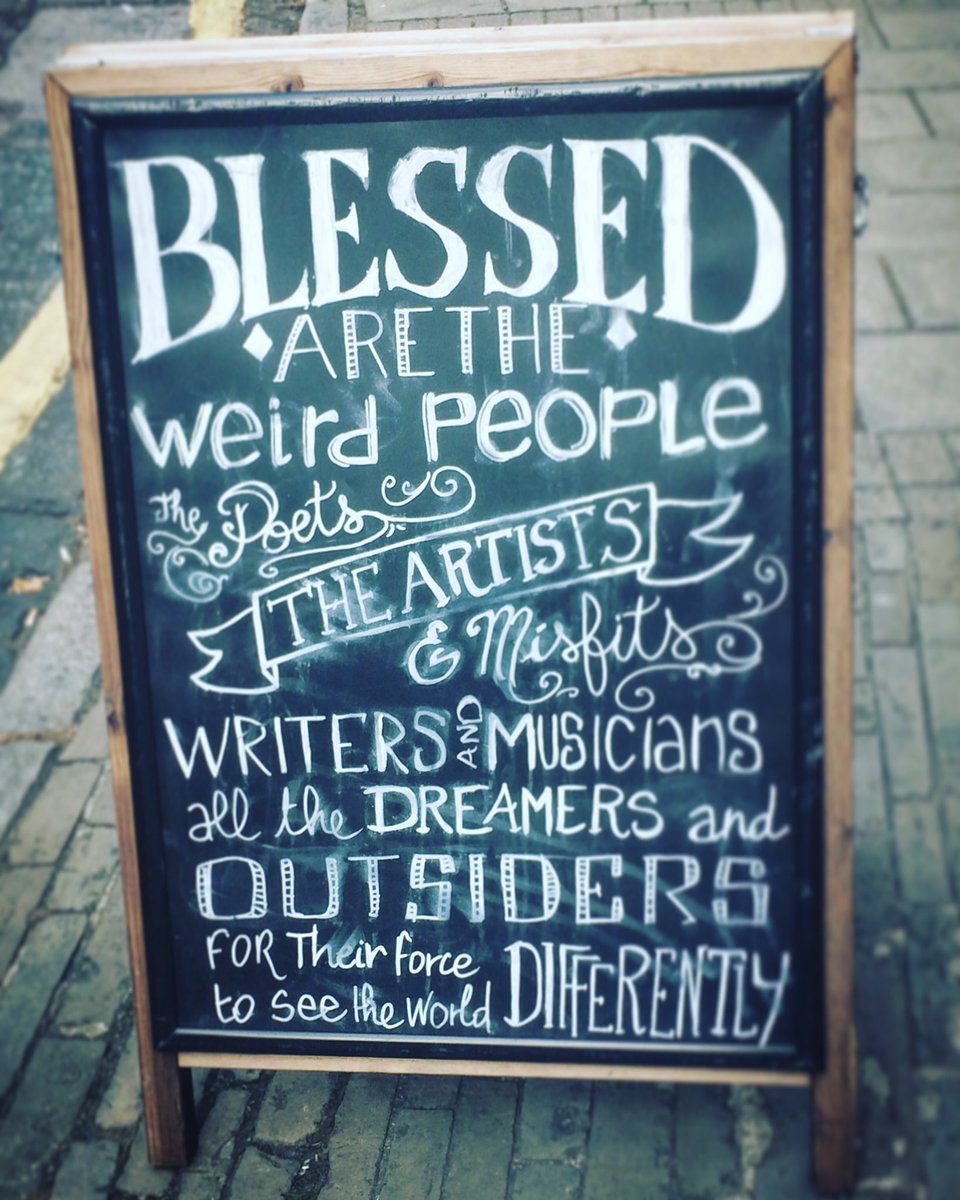 BLESSED
ARE THE
weird PEOPLE
The Poets
THE ARTISTS
& Misfits
WRITERS AND MUSICIANS
all the DREAMERS and
OUTSIDERS
FOR Their force
to see the world DIFFERENTLY